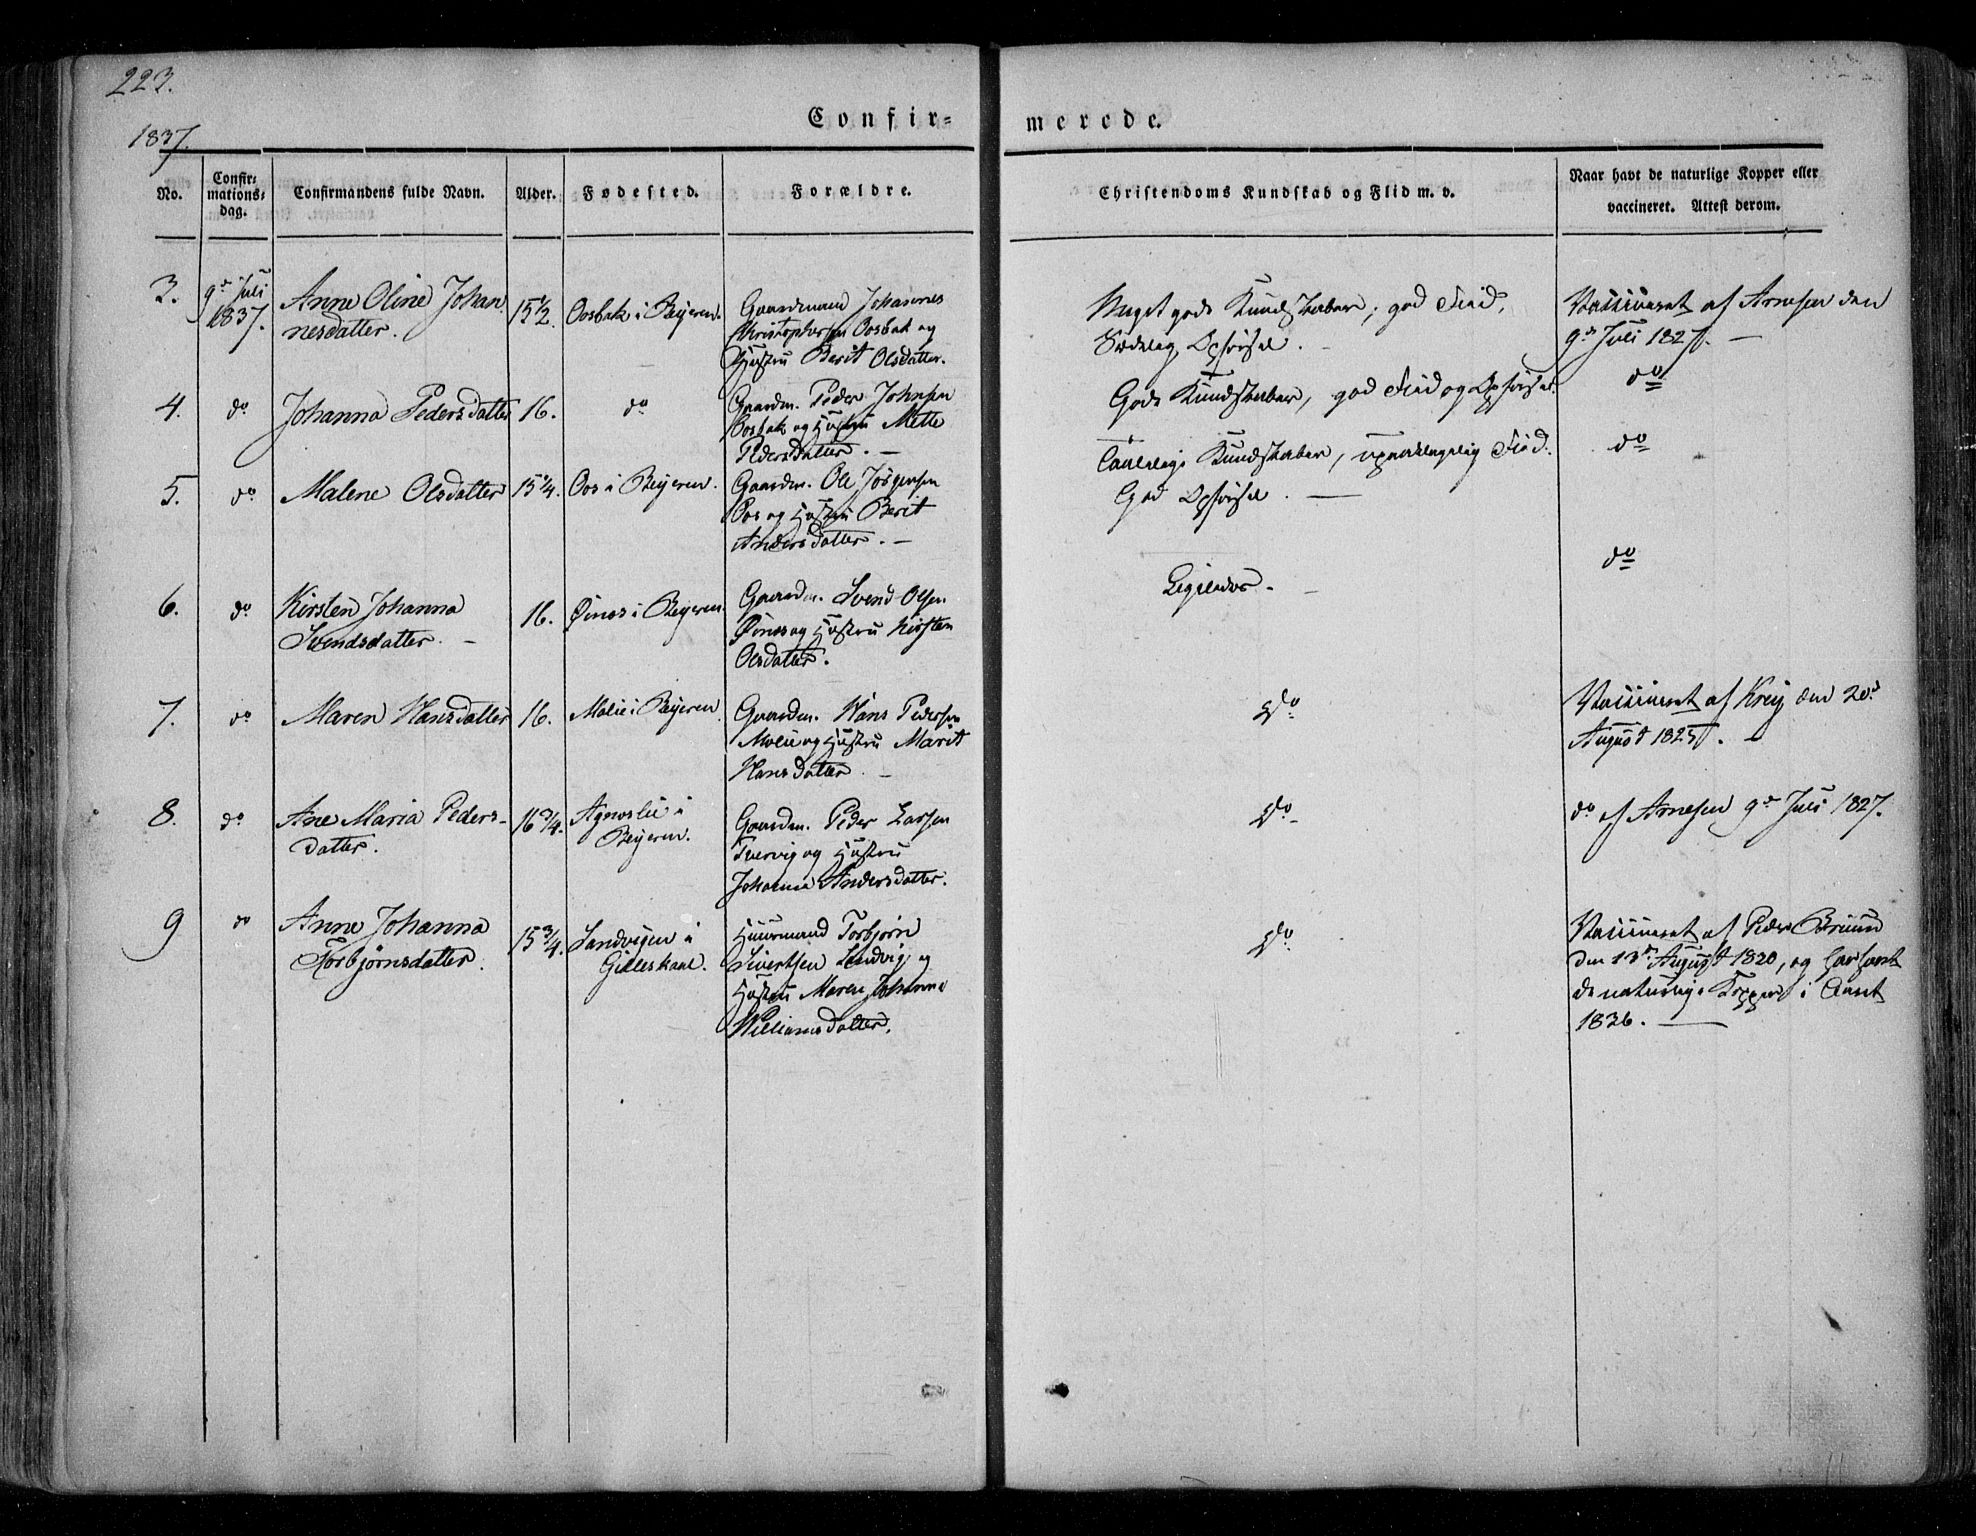 223.
1837.
Confir- merede.
No.
Confir-
mations-
dag.
Confirmandens fulde Navn.
Alder.
Fødested.
Forældre.
Christendoms Kundskab og Flid m. v.
Naar havt de naturlige Kopper eller
vaccineret. Attest derom.
3.
9de Juli
1837.
Anne Oline Johan
nesdatter.
15 1/2.
Oosbak i Beijeren.
Gaardmand Johannes
Christophersen Oosbak og
Hustru Berit Olsdatter.
Meget gode Kundskaber, god Flid,
Sædelig Opførsel.
Vaccineret af Arnesen den
9de Juli 1827.
4.
do
Johanna Pedersdatter
16.
do
Gaardm. Peder Johnsen
Oosbak og Hustru Mette
Pedersdatter.
Gode Kundskaber, god Flid og Opførsel.
do
5.
do
Malene Olsdatter
15 1/4.
Oos i Beijeren.
Gaardm. Ole Jørgensen
Oos og Hustru Berit
Andersdatter.
Taalelige Kundskaber, upaaklagelig Flid.
God Opførsel.
do
6.
do
Kirsten Johanna
Svendsdatter.
16.
Øinæs i Beijeren.
Gaardm. Svend Olsen
Øinæs og Hustru Kirsten
Olsdatter.
Ligeledes.
do
7.
do
Maren Hansdatter
16.
Molie i Beijeren.
Gaardm. Hans Pedersen
Molie og Hustru Marit
Hansdatter.
Do.
Vaccineret af Kreij den 20d
August 1825.
8.
do
Ane Maria Peders-
datter.
16 3/4.
Agnoslie i
Beijeren.
Gaardm. Peder Larsen
Tvervig og Hustru
Johanna Andersdatter.
Do.
do af Arnesen 9de Juli 1827.
9
do
Anne Johanna
Torbjørnsdatter.
15 3/4.
Sandvigen i
Gilleskaal.
Huusmand Torbjørn
Sivertsen Sandvig og
Hustru Maren Johanna
Williamsdatter.
Do.
Vaccineret af Peder Bruun
den 13de August 1820, og har havt
de naturlige Kopper i Aaret
1836.